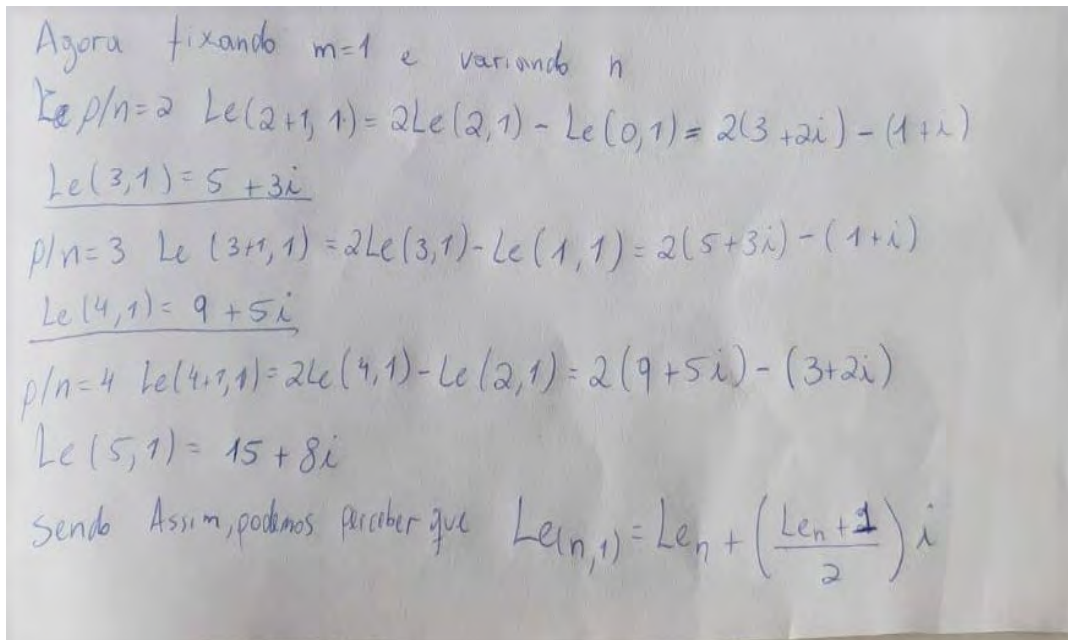 Agora fixando m=1 e variando n
p/n=2 Le(2+1, 1)= 2Le(2,1) - Le(0,1)= 2(3+2i) - (1+i)
Le(3,1)= 5+3i
p/n=3 Le (3+1, 1) = 2Le(3,1)-Le(1,1)= 2(5+3i)-(1+i)
Le(4,1)= 9+5i
p/n=4 Le(4+1,1)=2Le(4,1)-Le(2,1)= 2(9+5i)-(3+2i)
Le(5,1)= 15+8i
Sendo Assim, podemos perceber que Le(n,1)=Len+((Len+1)/2)i